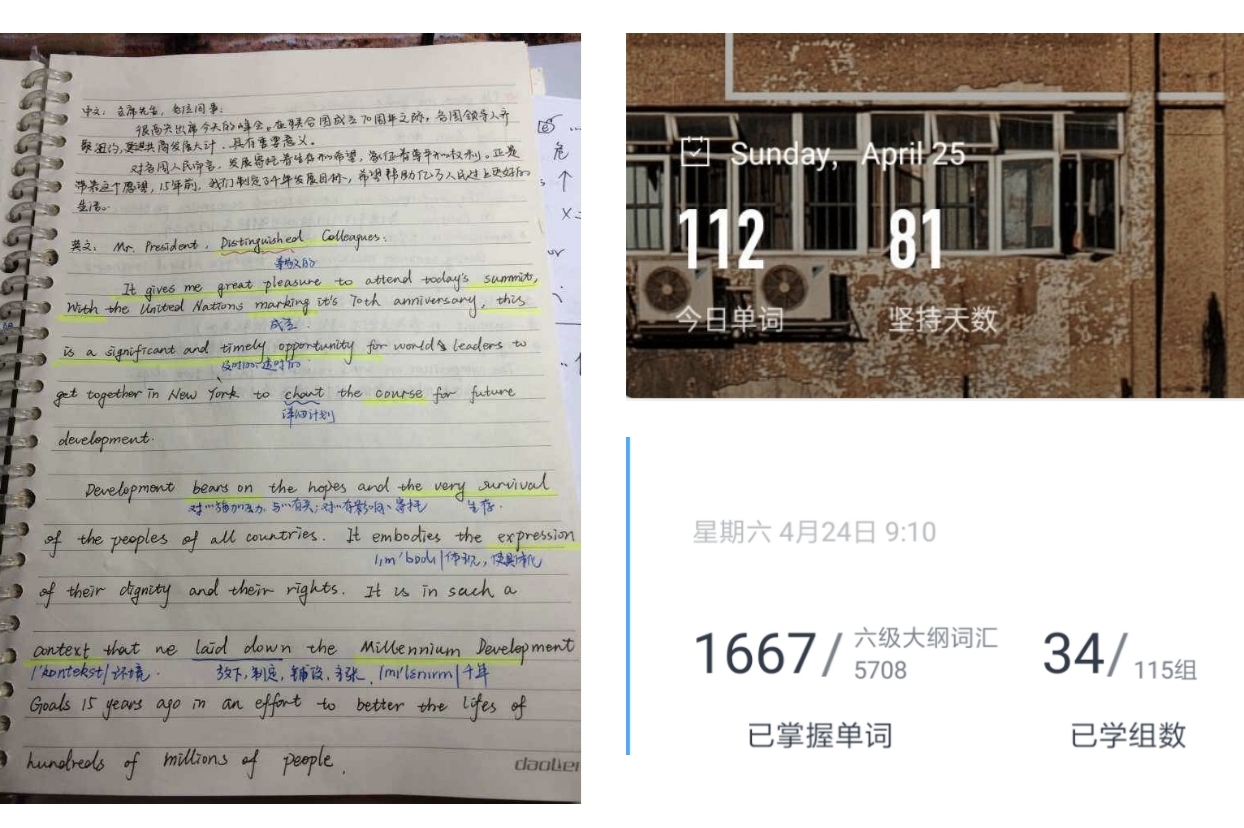 中文: 主席先生, 各位同事:
很高兴出席今天的峰会。在联合国成立70周年之际, 各国领导人齐
聚纽约, 共商发展大计, 具有重要意义。
对各国人民而言, 发展寄托着生存和希望, 象征着尊严和权利。正是
带着这个愿望, 15年前, 我们制定了千年发展目标, 希望帮助亿万人民过上更好的
生活。
英文: Mr. President, Distinguished Colleagues:
尊敬的
It gives me great pleasure to attend today's summit,
With the United Nations marking it's 70th anniversary, this
成立.
is a significant and timely opportunity for world's leaders to
及时的 适时的
get together in New York to chant the course for future
详细计划
development.
Development bears on the hopes and the very survival
对…施加压力, 与…有关; 对…有影响、寄托 生存.
of the peoples of all countries. It embodies the expression
/ɪm'bɒdi/体现, 使具体化
of their dignity and their rights. It is in such a
context that we laid down the Millennium Development
/'kɒntekst/环境. 放下, 制定, 铺设, 主张. 千年
Goals 15 years ago in an effort to better the lifes of
hundreds of millions of people.
危
↑
Sunday, April 25
112 81
今日单词 坚持天数
星期六 4月24日 9:10
1667/ 六级大纲词汇 5708 34/ 115组
已掌握单词 已学组数